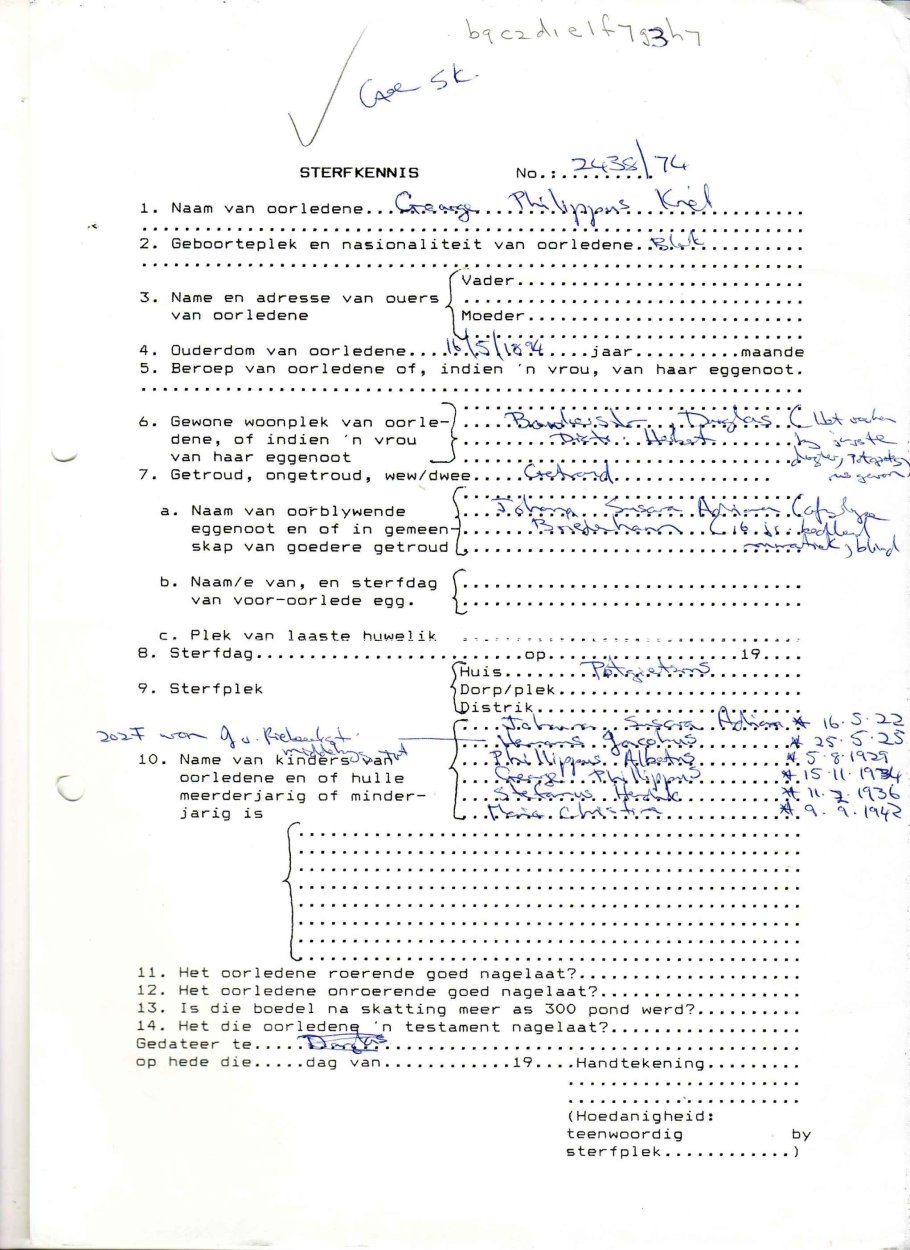 b9c2d1e1f7g3h7
Gae SK.
STERFKENNIS No.:.2438/74
1. Naam van oorledene...George Philippus Kriel
2. Geboorteplek en nasionaliteit van oorledene.
3. Name en adresse van ouers van oorledene
Vader
Moeder
4. Ouderdom van oorledene....16/5/1894....jaar..........maande
5. Beroep van oorledene of, indien 'n vrou, van haar eggenoot.
6. Gewone woonplek van oorledene, of indien 'n vrou van haar eggenoot
Douglas
Distr.: Herbert
7. Getroud, ongetroud, wew/dwee....Getroud
a. Naam van oorblywende eggenoot en of in gemeenskap van goedere getroud
Johanna Susara Adriana
blind
b. Naam/e van, en sterfdag van voor-oorlede egg.
c. Plek van laaste huwelik
8. Sterfdag.........................op....................19....
9. Sterfplek
Huis
Dorp/plek
Distrik
10. Name van kinders van oorledene en of hulle meerderjarig of minderjarig is
Johanna Susara Adriana * 16.5.22
Jacobus * 25.5.25
Phillippus Albertus * 5.8.1929
George Phillippus * 15.11.1934
Stefanus * 11.7.1936
Maria Christina * 9.9.1942
11. Het oorledene roerende goed nagelaat?
12. Het oorledene onroerende goed nagelaat?
13. Is die boedel na skatting meer as 300 pond werd?
14. Het die oorledene 'n testament nagelaat?
Gedateer te.....Douglas
op hede die.....dag van............19....Handtekening.........
(Hoedanigheid:
teenwoordig by
sterfplek............)